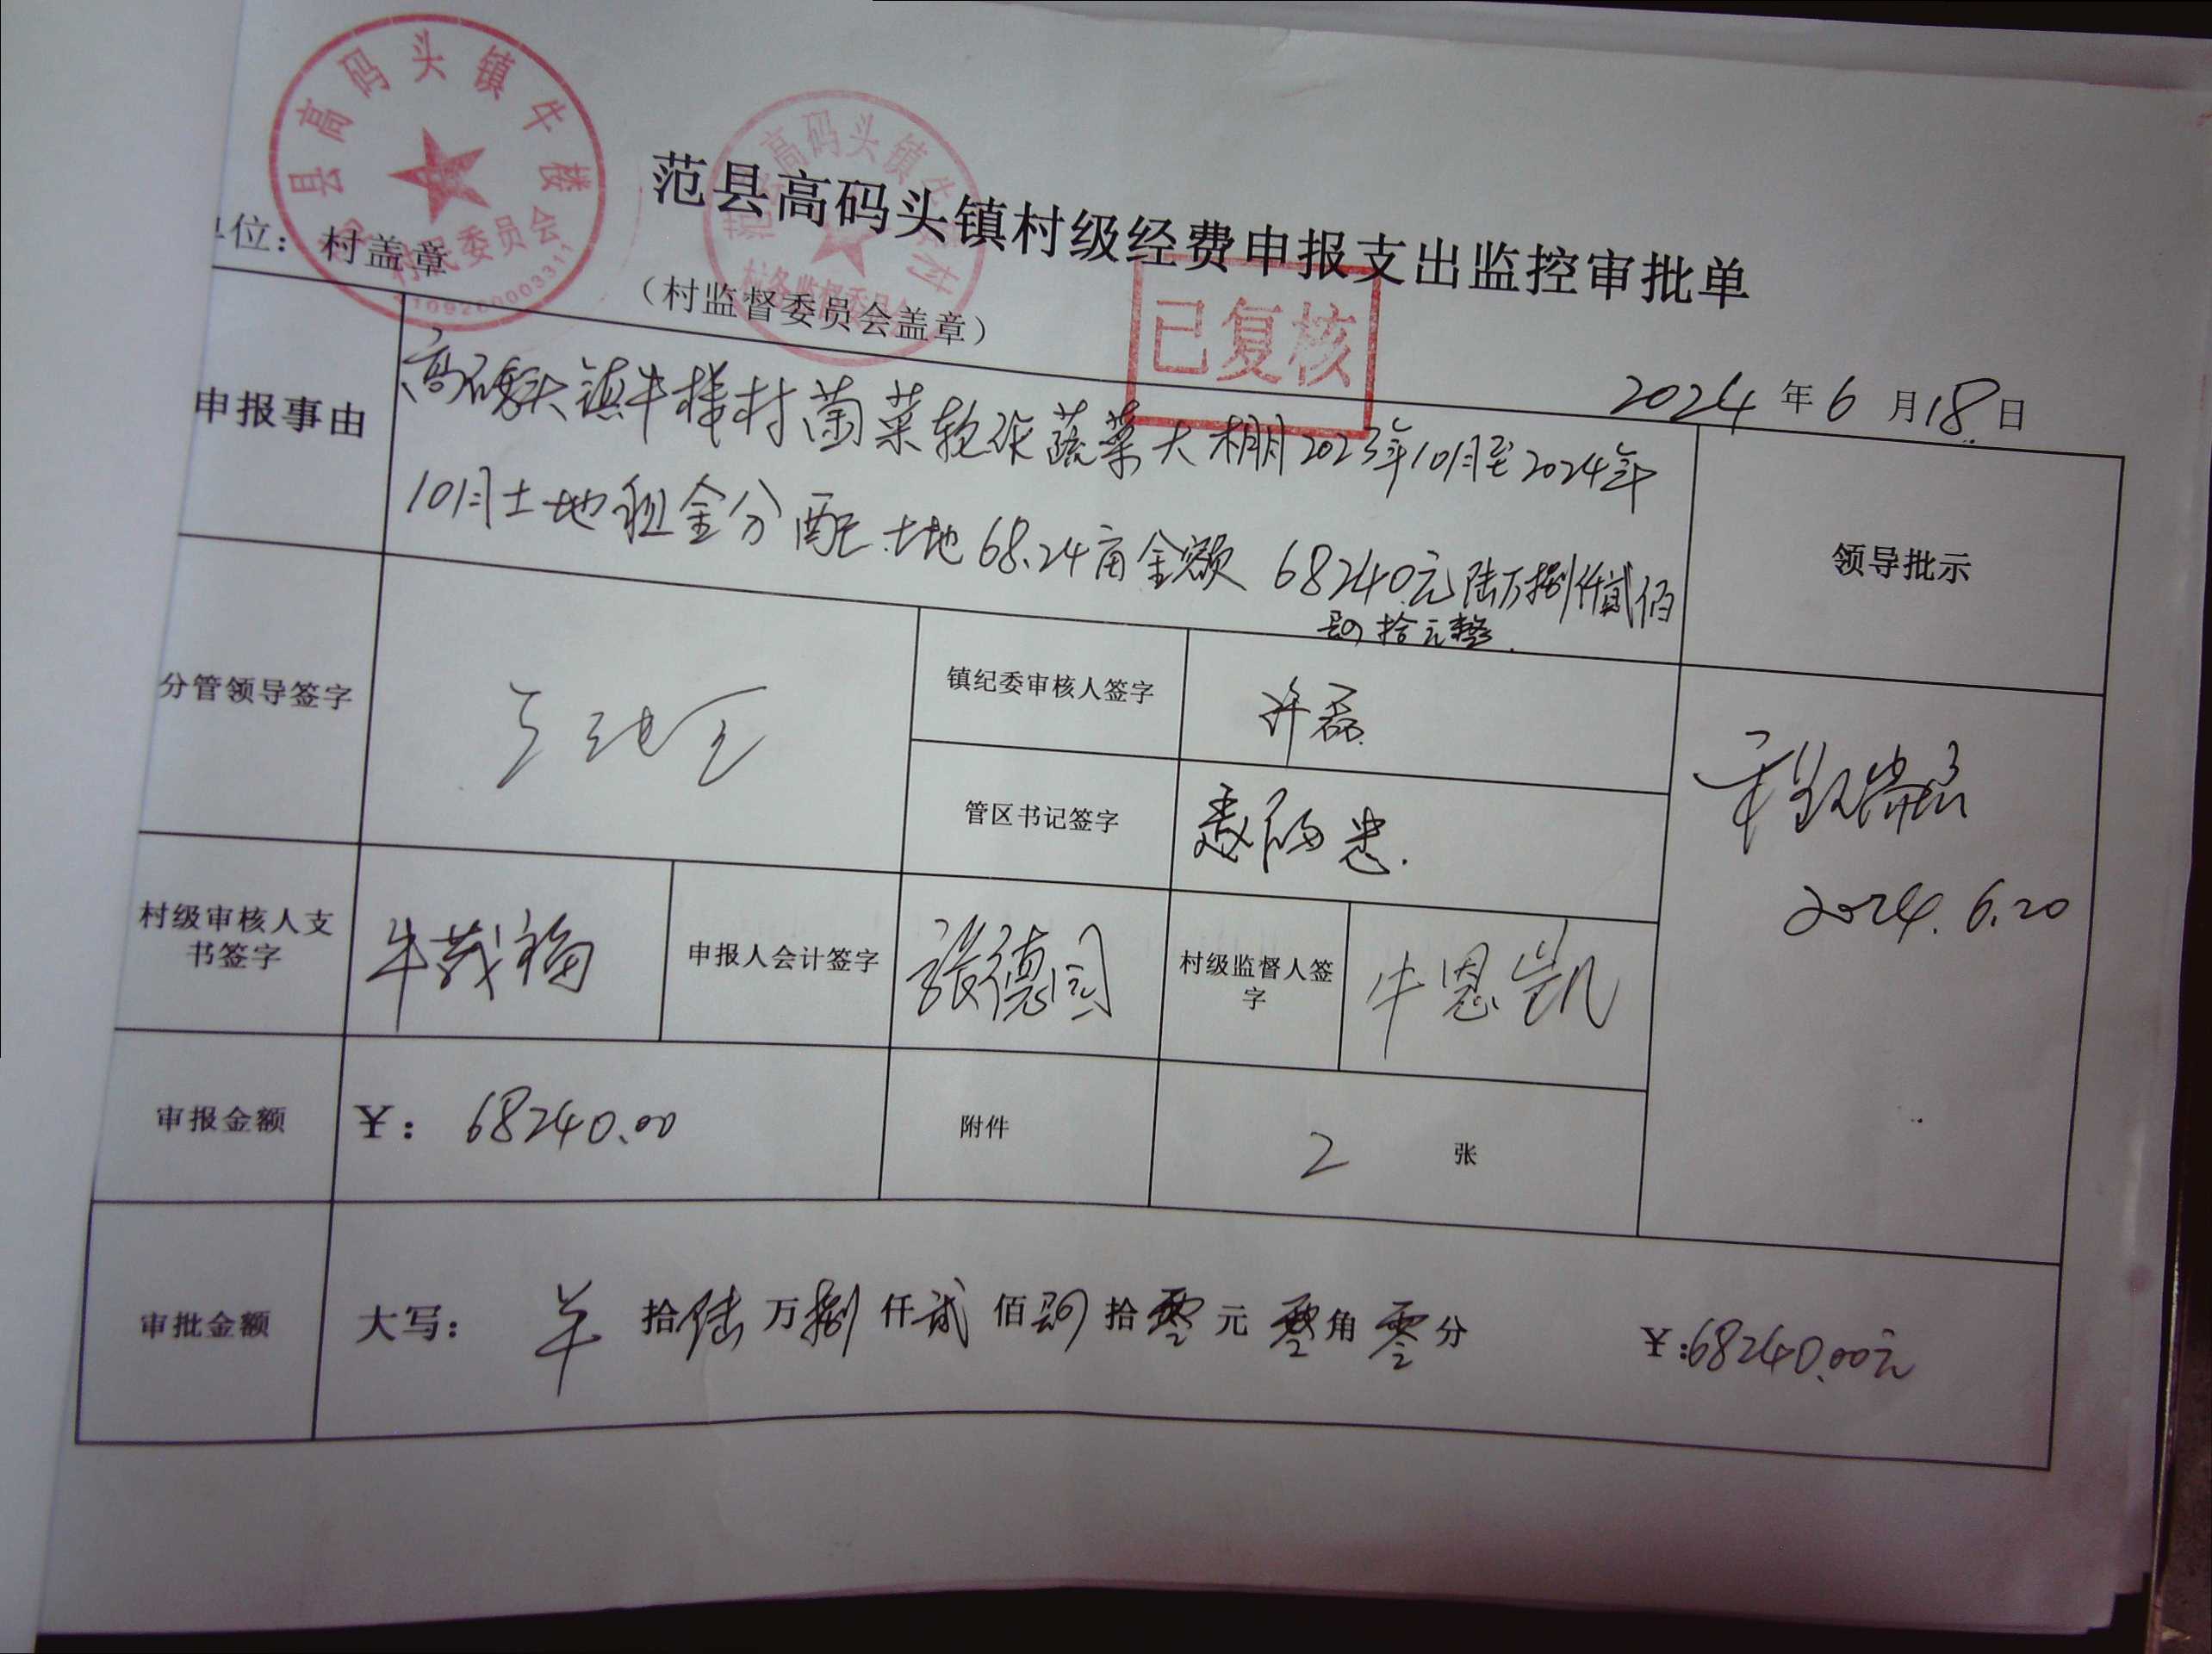 县高码头镇牛楼
村民委员会
高码头镇牛
村务监督委员会
范县高码头镇村级经费申报支出监控审批单
位: 村盖章
(村监督委员会盖章)
已复核
2024年6月18日
申报事由
高码头镇牛楼村菌菜轮作蔬菜大棚2023年10月至2024年
10月土地租金分配.土地68.24亩金额 68240元陆万捌仟贰佰
肆拾元整.
领导批示
分管领导签字
镇纪委审核人签字
许磊
管区书记签字
2024.6.20
村级审核人支
书签字
牛茂福
申报人会计签字
张德同
村级监督人签
字
牛恩凯
审报金额
¥: 68240.00
附件
2 张
审批金额
大写: 拾陆万捌仟贰佰肆拾零元零角零分 ¥:68240.00元